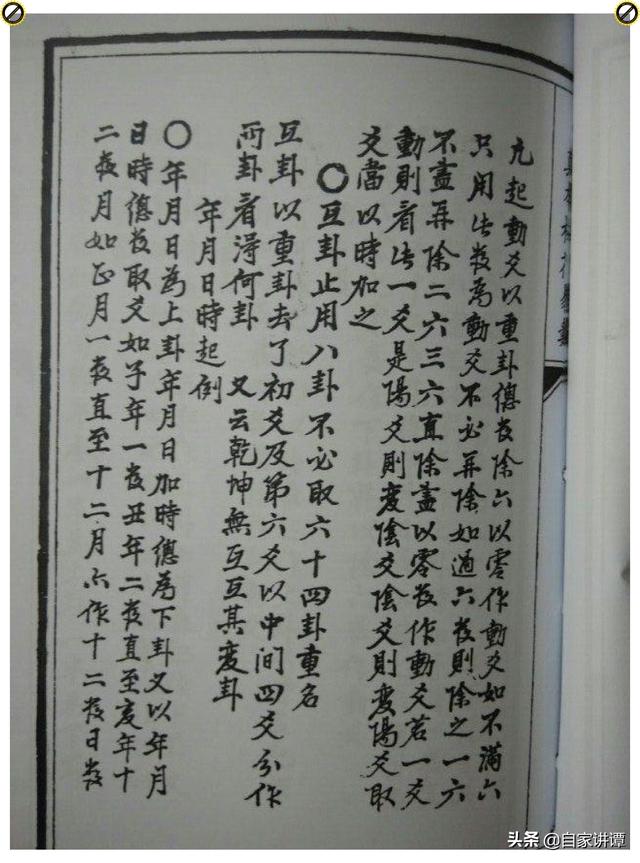 凡起動爻以重卦總数除六以零作動爻如不滿六
只用此数為動爻不必再除如過六数則除之一六
不盡再除二六三六直除盡以零数作動爻若一爻
動則看此一爻是陽爻則变陰爻陰爻則变陽爻取
爻當以時加之
○互卦止用八卦不必取六十四卦重名
互卦以重卦去了初爻及第六爻以中间四爻分作
両卦看得何卦 又云乾坤無互互其变卦
年月日時起例
○年月日為上卦年月日加時總為下卦又以年月
日時總数取爻如子年一数丑年二数直至亥年十
二数月如正月一数直至十二月亦作十二数日数
头条 @自家讲谭